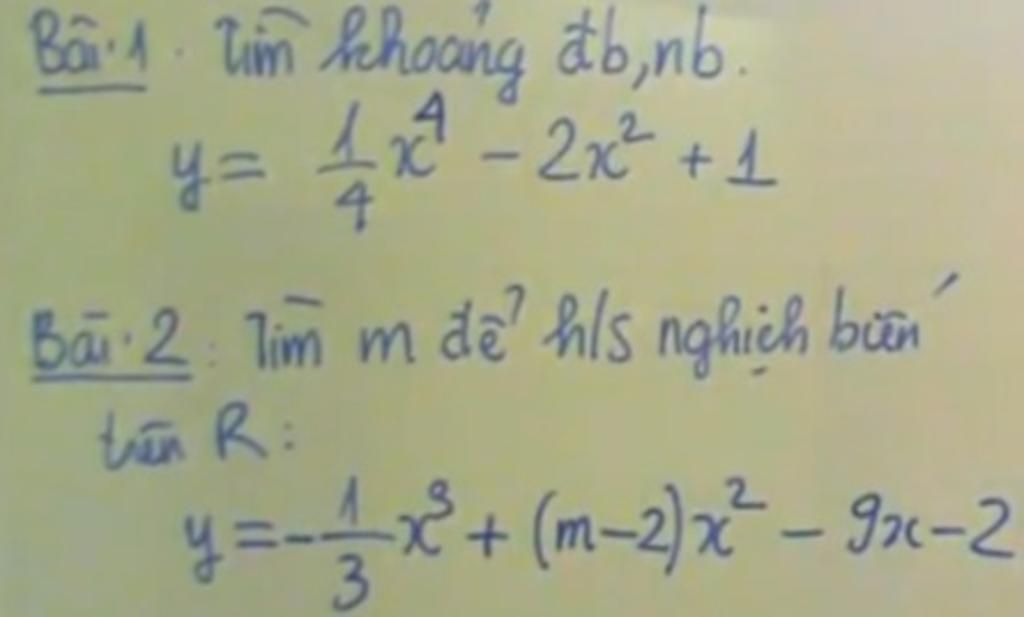 Bài 1. Tìm khoảng đb, nb.
y = 1/4 x⁴ - 2x² + 1
Bài 2: Tìm m để h/s nghịch biến
trên R:
y = -1/3 x³ + (m-2)x² - 9x - 2